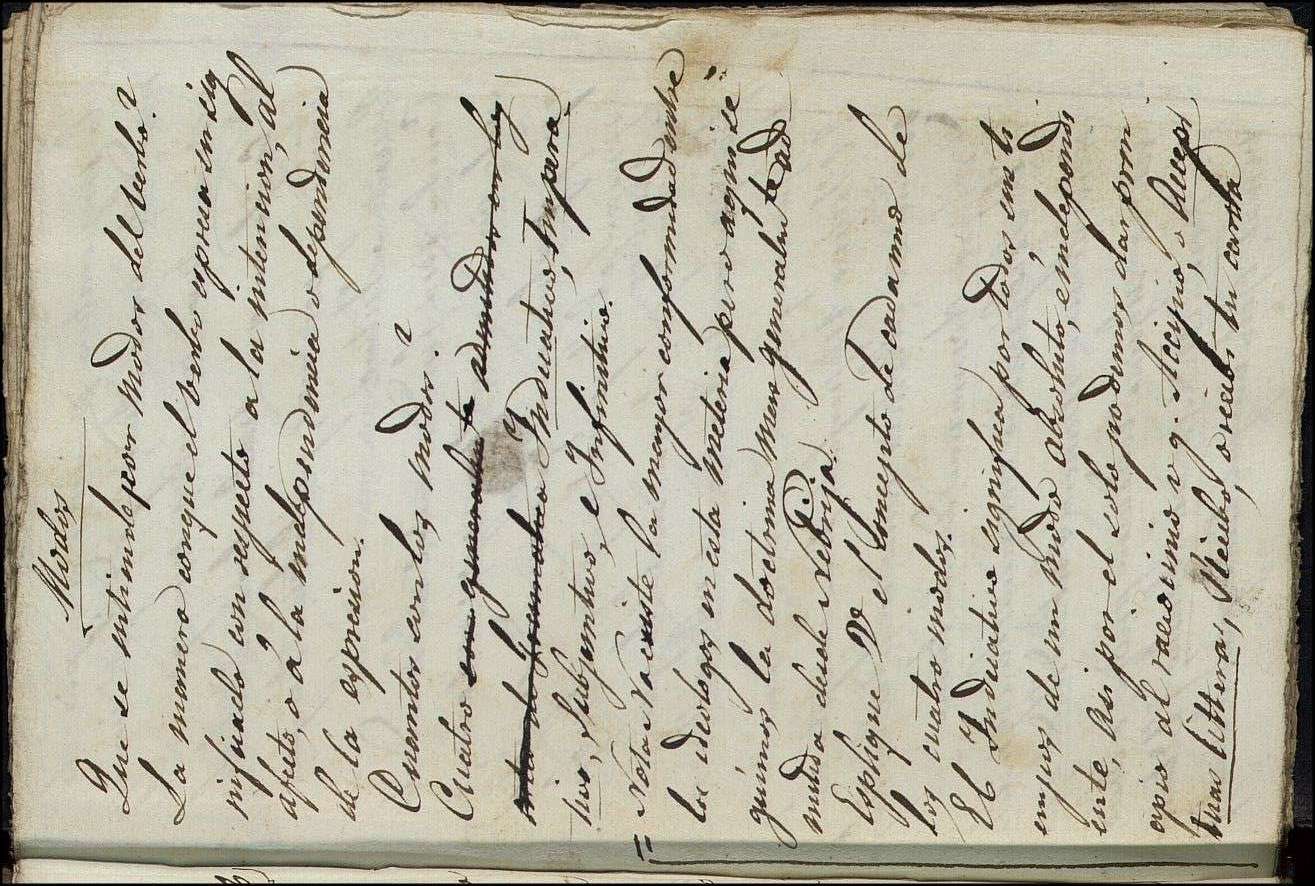 Modos
Que se entiende por modos del verbo?
La manera conque el verbo espresa su sig
nificado con respecto a la intencion, al
afecto, o á la independencia o dependencia
de la espresion.
Cuantos son los modos?
Cuatro son generalmte admitidos en las
Indicativo, Impera
tivo, Subjuntivo, e Infinitivo.
= Nota No existe la mayor conformidad entre
los ideologos en esta materia pero aqui se
guimos la doctrina mas generalmte ad
mitida desde Nebrija.
Esplique V el Concepto de cada uno de
los cuatro modos.
El Indicativo significa por todos sus ti
empos de un modo absoluto, e independi
ente, asi por el solo podemos dar prin
cipio al raciocinio v g. Accipio, o Accepi
tuas litteras, Recibo, o recibi tu carta